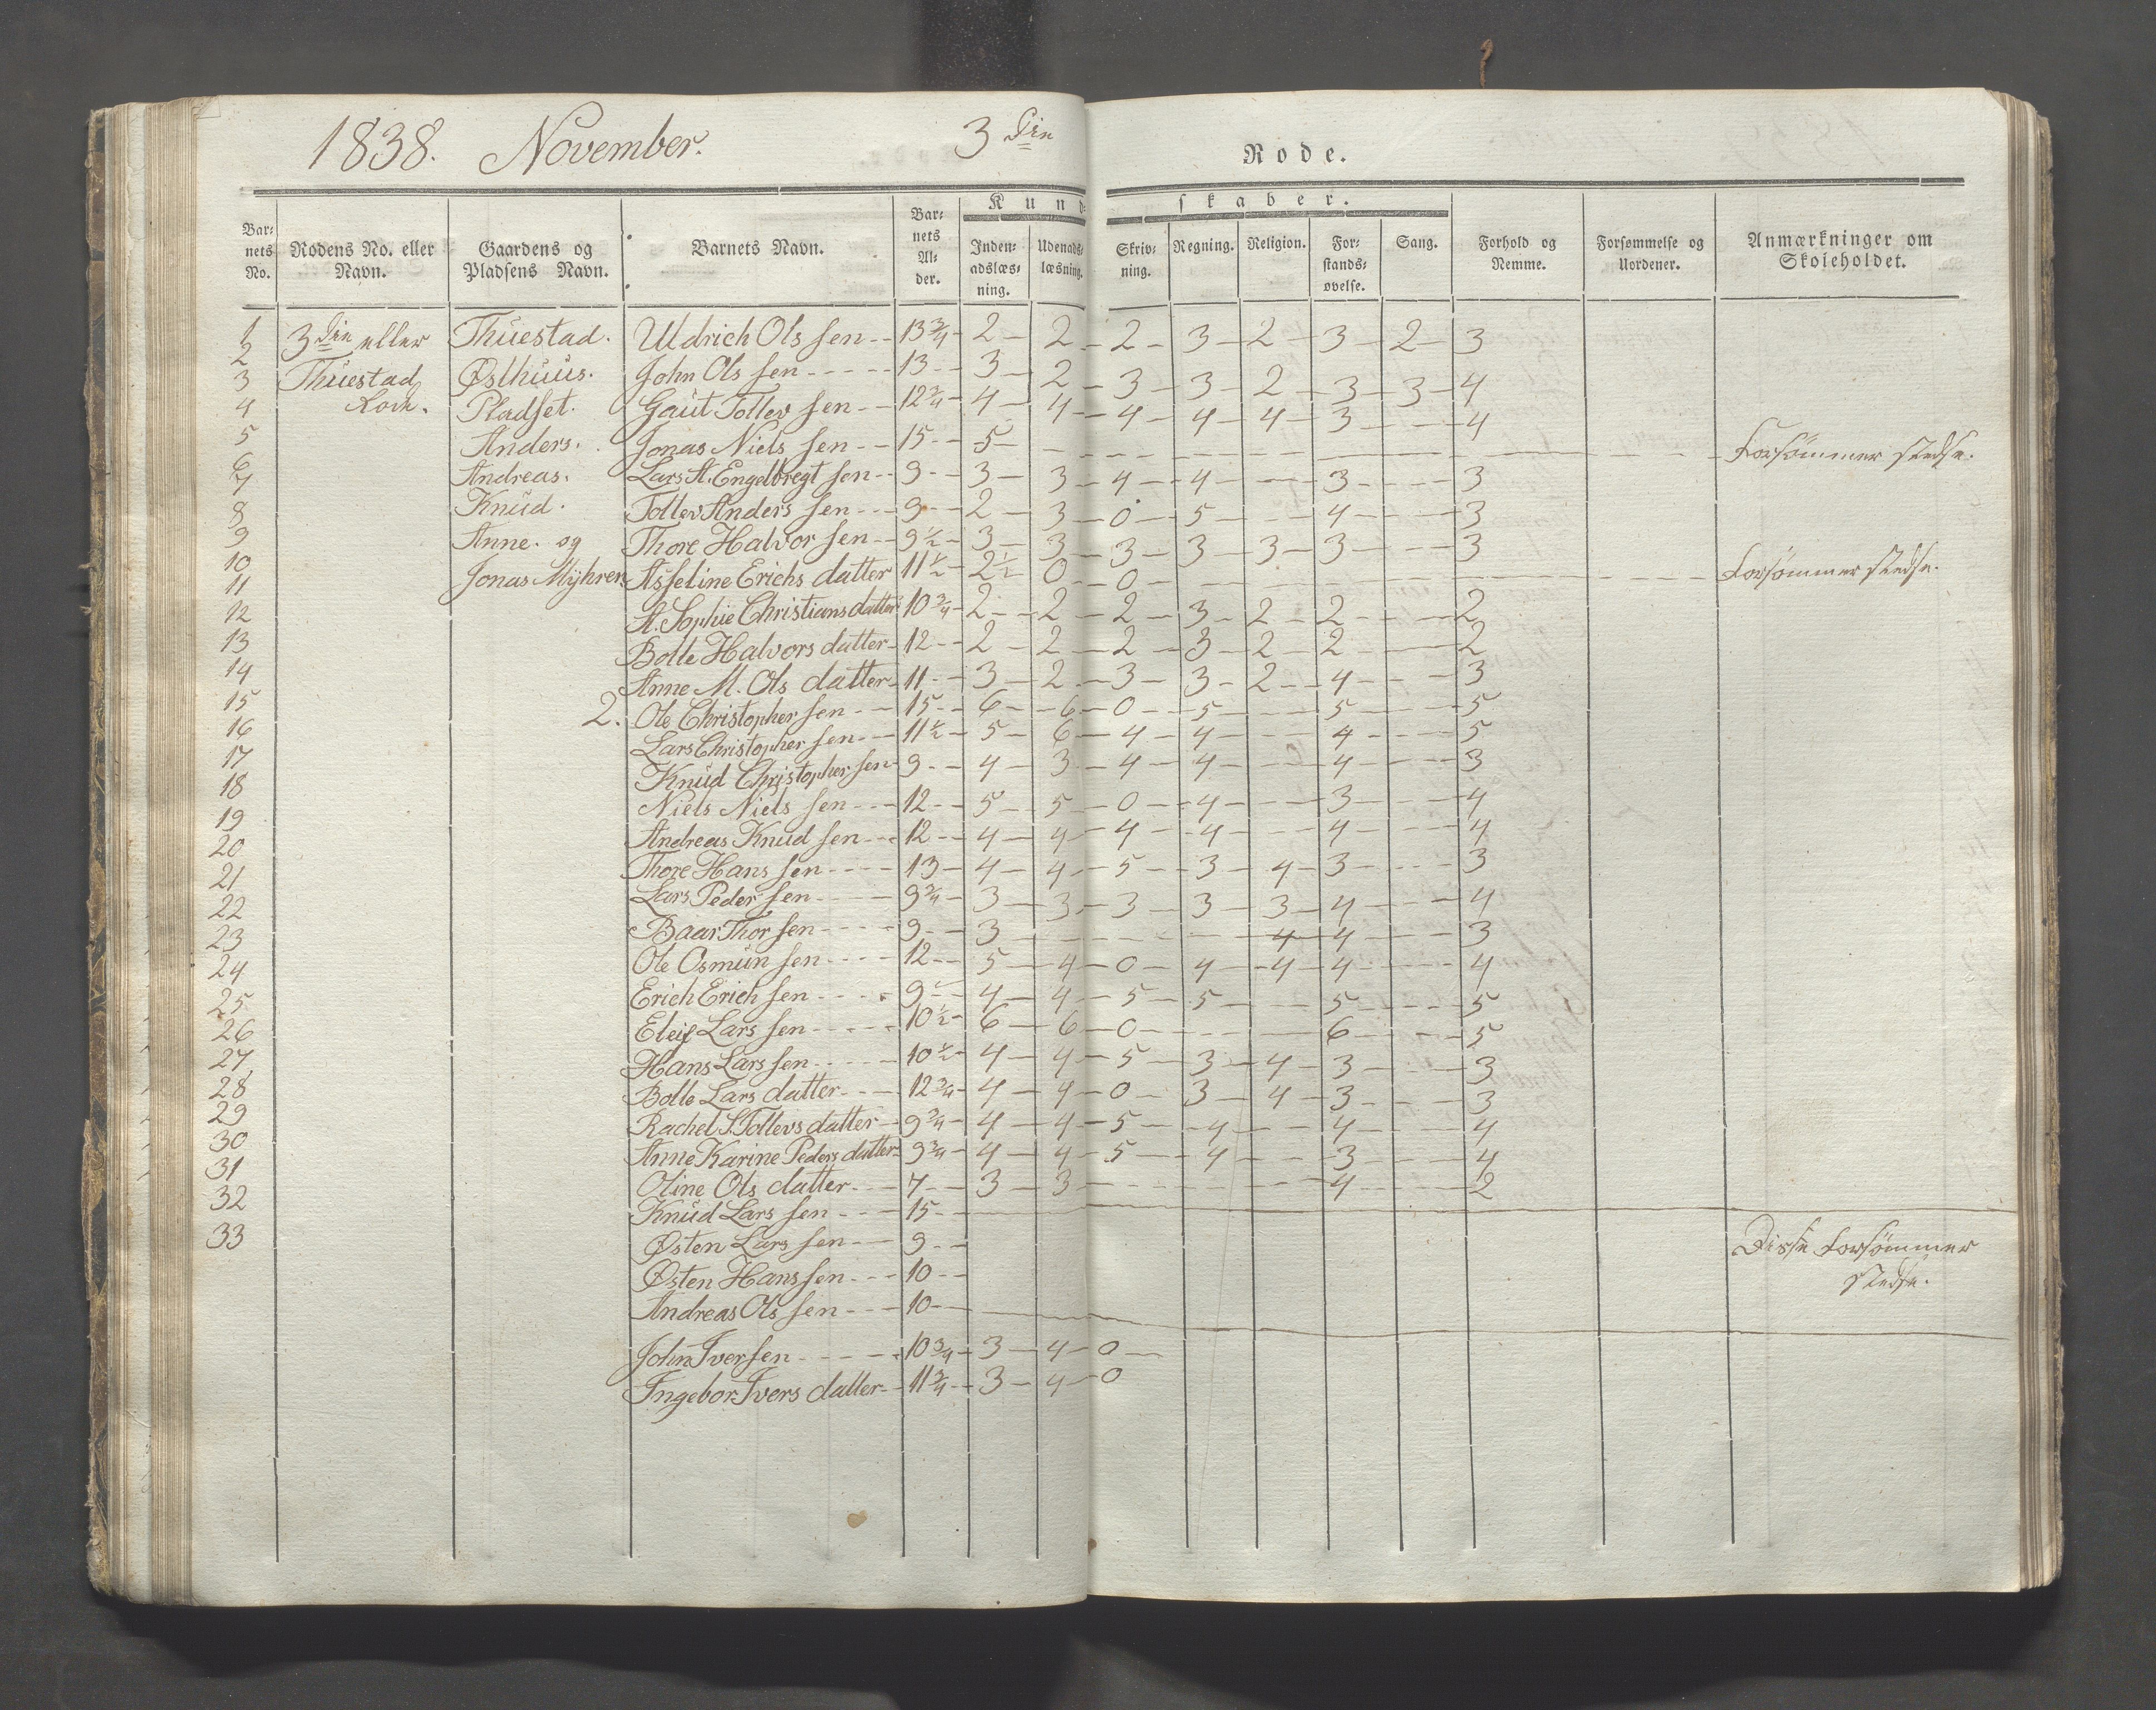 1838. November. 3die
Rode.
Kund-
skaber.
Bar-
nets
No.
Rodens No. eller
Navn.
Gaardens og
Pladsens Navn.
Barnets Navn.
Bar-
nets
Al-
der.
Inden-
adslæs-
ning.
Udenads-
læsning.
Skriv-
ning.
Regning.
Religion.
For-
stands-
øvelse.
Sang.
Forhold og
Nemme.
Forsømmelse og
Uordener.
Anmærkninger om
Skoleholdet.
1 3die eller Thuestad. Uldrich Olssen 13 3/4 2 2 2 3 2 3 2 3
2 Thuestad Østhuus. John Olssen 13 3 2 3 3 2 3 3 4
3 Rode. Pladset. Gaut Tollevsen 12 3/4 4 4 4 4 4 3 4
4 Anders. Jonas Nielssen 15 5 Forsømmer stedse.
5 Andreas. Lars A. Engelbregtsen 9 3 3 4 4 3 3
6 Knud. Tollev Anderssen 9 2 3 0 5 4 3
7 Anne. og Thore Halvorsen 9 1/2 3 3 3 3 3 3 3
8 Jonas Myhren Asseline Erichsdatter 11 1/2 2 1/2 0 0 Forsømmer stedse.
9 A. Sophie Christiansdatter 10 3/4 2 2 2 3 2 2 2
10 Bolle Halvorsdatter 12 2 2 2 3 2 2 2
11 Anne M. Olsdatter 11 3 2 3 3 2 4 3
12 2. Ole Christophersen 15 6 6 0 5 5 5
13 Lars Christophersen 11 1/2 5 6 4 4 4 5
14 Knud Christophersen 9 4 3 4 4 4 3
15 Niels Nielssen 12 5 5 0 4 3 4
16 Andreas Knudsen 12 4 4 4 4 4 4
17 Thore Hanssen 13 4 4 5 3 4 3 3
18 Lars Pedersen 9 3/4 3 3 3 3 3 4 4
19 Baar Thorsen 9 3 4 4 3
20 Ole Osmunsen 12 5 4 0 4 4 4 4
21 Erich Erichsen 9 4 4 5 5 5 5
22 Eleif Larssen 10 1/2 6 6 0 6 5
23 Hans Larssen 10 1/2 4 4 5 3 4 3 3
24 Bolle Larsdatter 12 3/4 4 4 0 3 4 3 3
25 Rachel S. Tollevsdatter 9 3/4 4 4 5 4 4 4
26 Anne Karine Pedersdatter 9 3/4 4 4 5 4 3 4
27 Oline Olsdatter 7 3 3 4 2
28 Knud Larssen 15
29 Østen Larssen 9 Disse forsømmer
30 Østen Hanssen 10 stedse.
31 Andreas Olssen 10
32 John Iversen 10 3/4 3 4 0
33 Ingebor Iversdatter 11 3/4 3 4 0